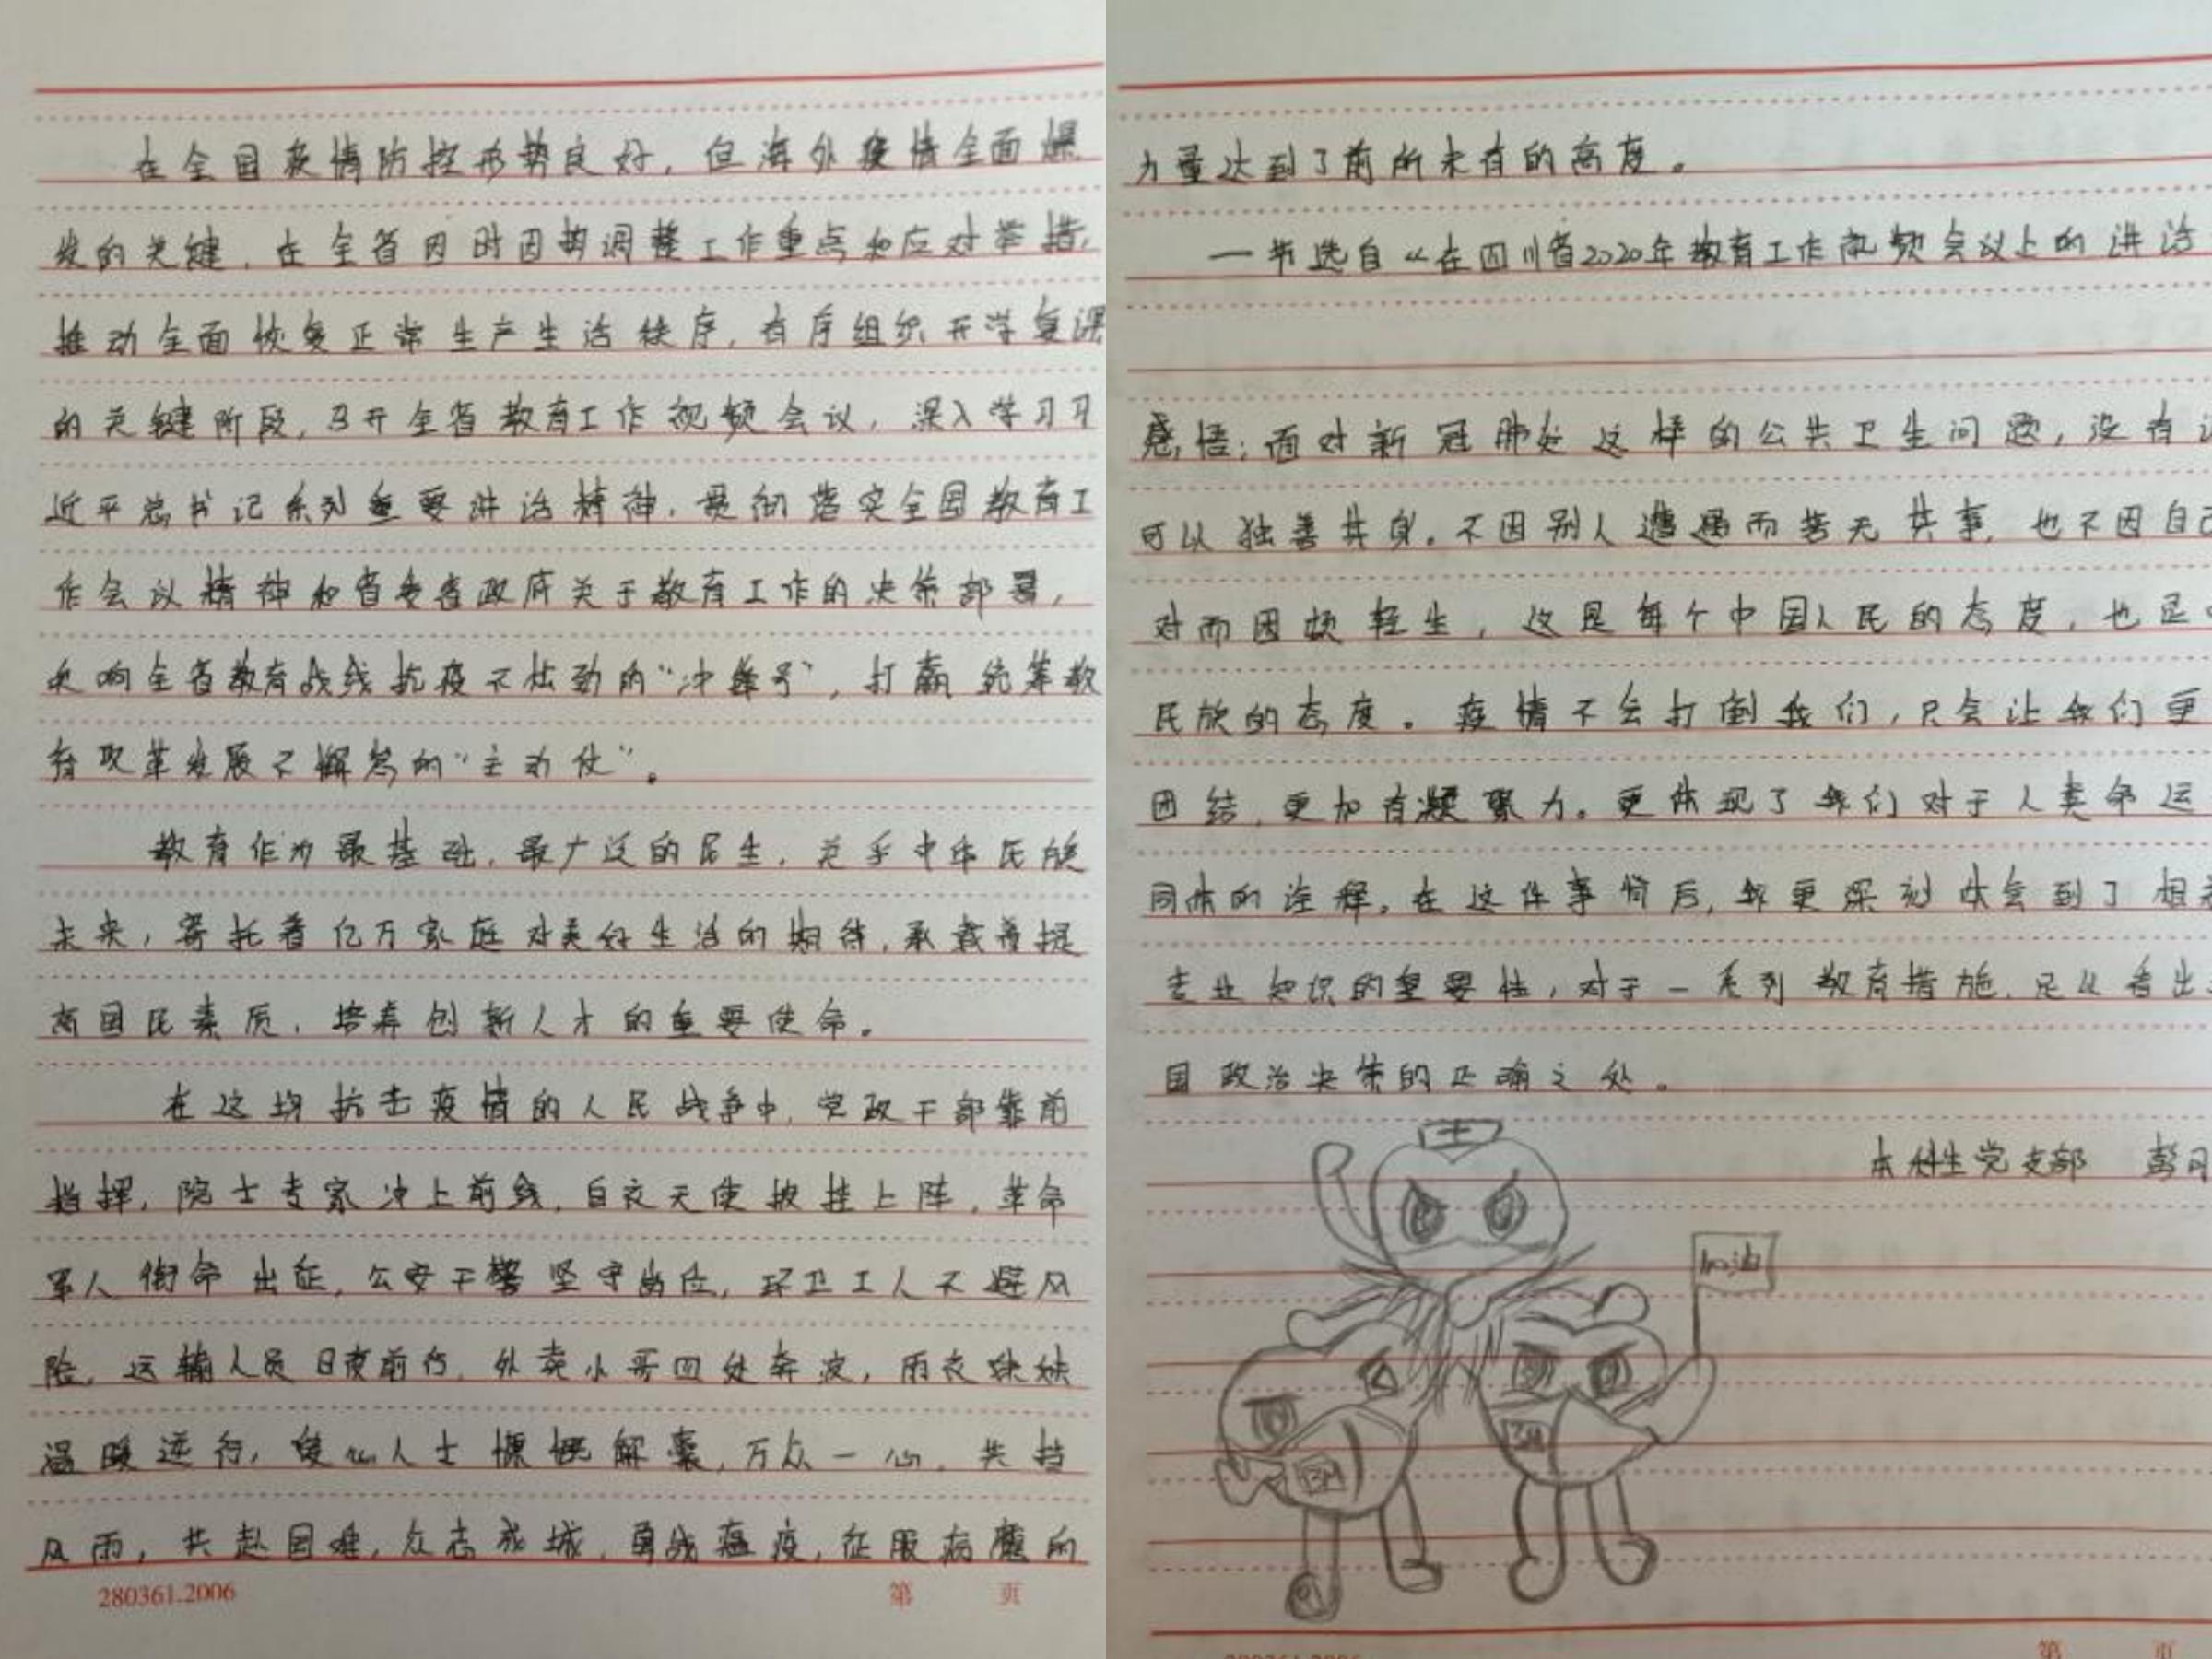 在全国疫情防控形势良好,但海外疫情全面爆
发的关键,在全省因时因势调整工作重点和应对举措,
推动全面恢复正常生产生活秩序,有序组织开学复课
的关键阶段,召开全省教育工作视频会议,深入学习习
近平总书记系列重要讲话精神,贯彻落实全国教育工
作会议精神和省委省政府关于教育工作的决策部署,
吹响全省教育战线抗疫不松劲的“冲锋号”,打赢统筹教
育改革发展不懈怠的“主动仗”。
教育作为最基础,最广泛的民生,关乎中华民族
未来,寄托着亿万家庭对美好生活的期待,承载着提
高国民素质,培养创新人才的重要使命。
在这场抗击疫情的人民战争中,党政干部靠前
指挥,院士专家冲上前线,白衣天使披挂上阵,革命
军人衔命出征,公安干警坚守岗位,环卫工人不避风
险,运输人员日夜前行,外卖小哥四处奔波,雨衣妹妹
温暖逆行,爱心人士慷慨解囊,万众一心,共挡
风雨,共赴国难,众志成城,勇战瘟疫,征服病魔的
280361.2006
第 页
力量达到了前所未有的高度。
—节选自“在四川省2020年教育工作视频会议上的讲话
感悟:面对新冠肺炎这样的公共卫生问题,没有
可以独善其身。不因别人遭遇而若无其事,也不因自己
对而困烦轻生,这是每个中国人民的态度,也是
民族的态度。疫情不会打倒我们,只会让我们更
团结,更加有凝聚力。更体现了我们对于人类命运
同体的诠释。在这件事情后,我更深刻体会到了相关
专业知识的重要性,对于一系列教育措施,足以看出
国政治决策的正确之处。
本科生党支部 彭
加油
第 页